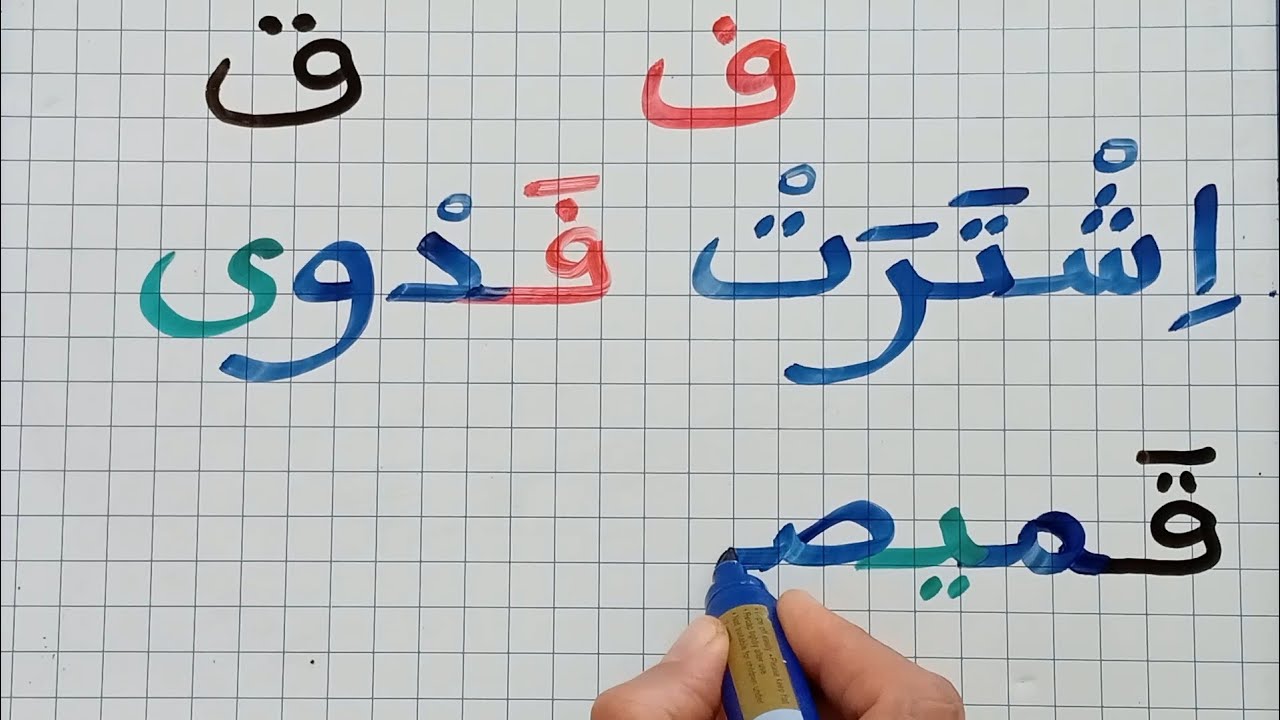 ف ق
اِشْتَرَتْ فَدْوى
قَميصـ